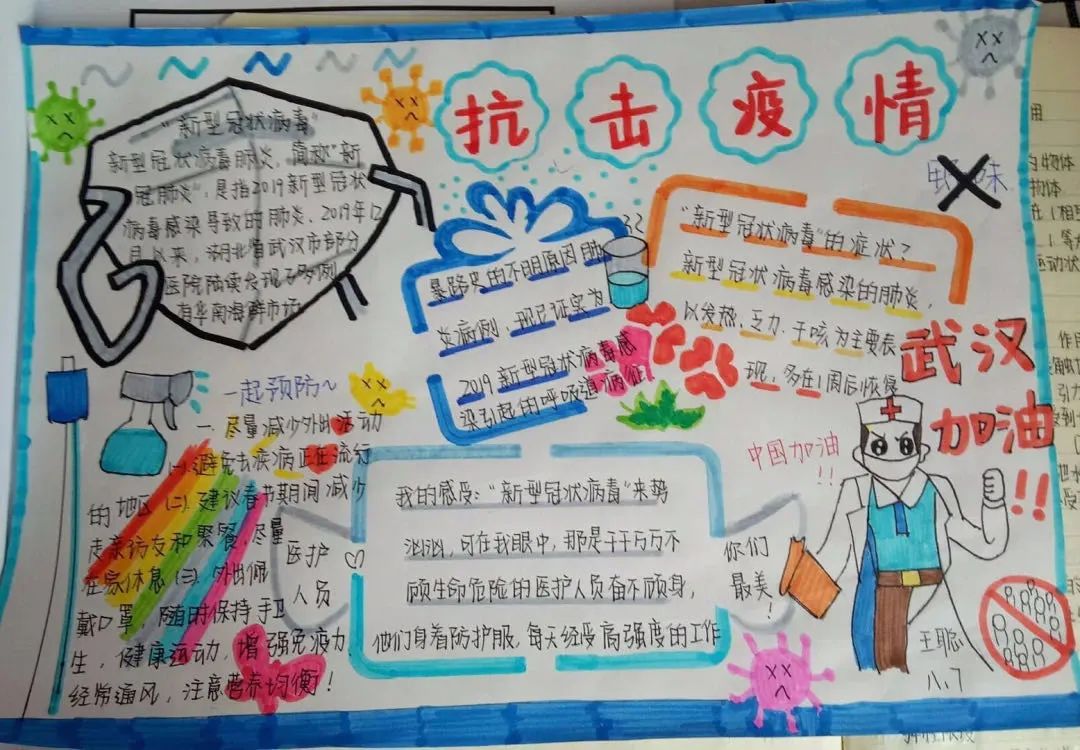 抗击疫情
"新型冠状病毒"
新型冠状病毒肺炎，简称"新
冠肺炎"，是指2019新型冠状
病毒感染导致的肺炎，2019年12
月以来，湖北省武汉市部分
医院陆续发现了多例
有华南海鲜市场
暴露史的不明原因肺
炎病例，现已证实为
2019新型冠状病毒感
染引起的呼吸道病征
"新型冠状病毒"的症状？
新型冠状病毒感染的肺炎，
以发热，乏力，干咳为主要表
现，多在1周后恢复
武汉
加油
!!
中国加油
!!
一起预防~
一、尽量减少外出活动
(一)避免去疾病正在流行
的地区(二)、建议春节期间减少
走亲访友和聚餐，尽量
在家休息(三)、外出佩
戴口罩，随时保持手卫
生，健康运动，增强免疫力，
经常通风，注意营养均衡！
医护
人员
我的感受："新型冠状病毒"来势
汹汹，可在我眼中，那是千千万万不
顾生命危险的医护人员奋不顾身，
他们身着防护服，每天经受高强度的工作
你们
最美
!
王聪
八、7